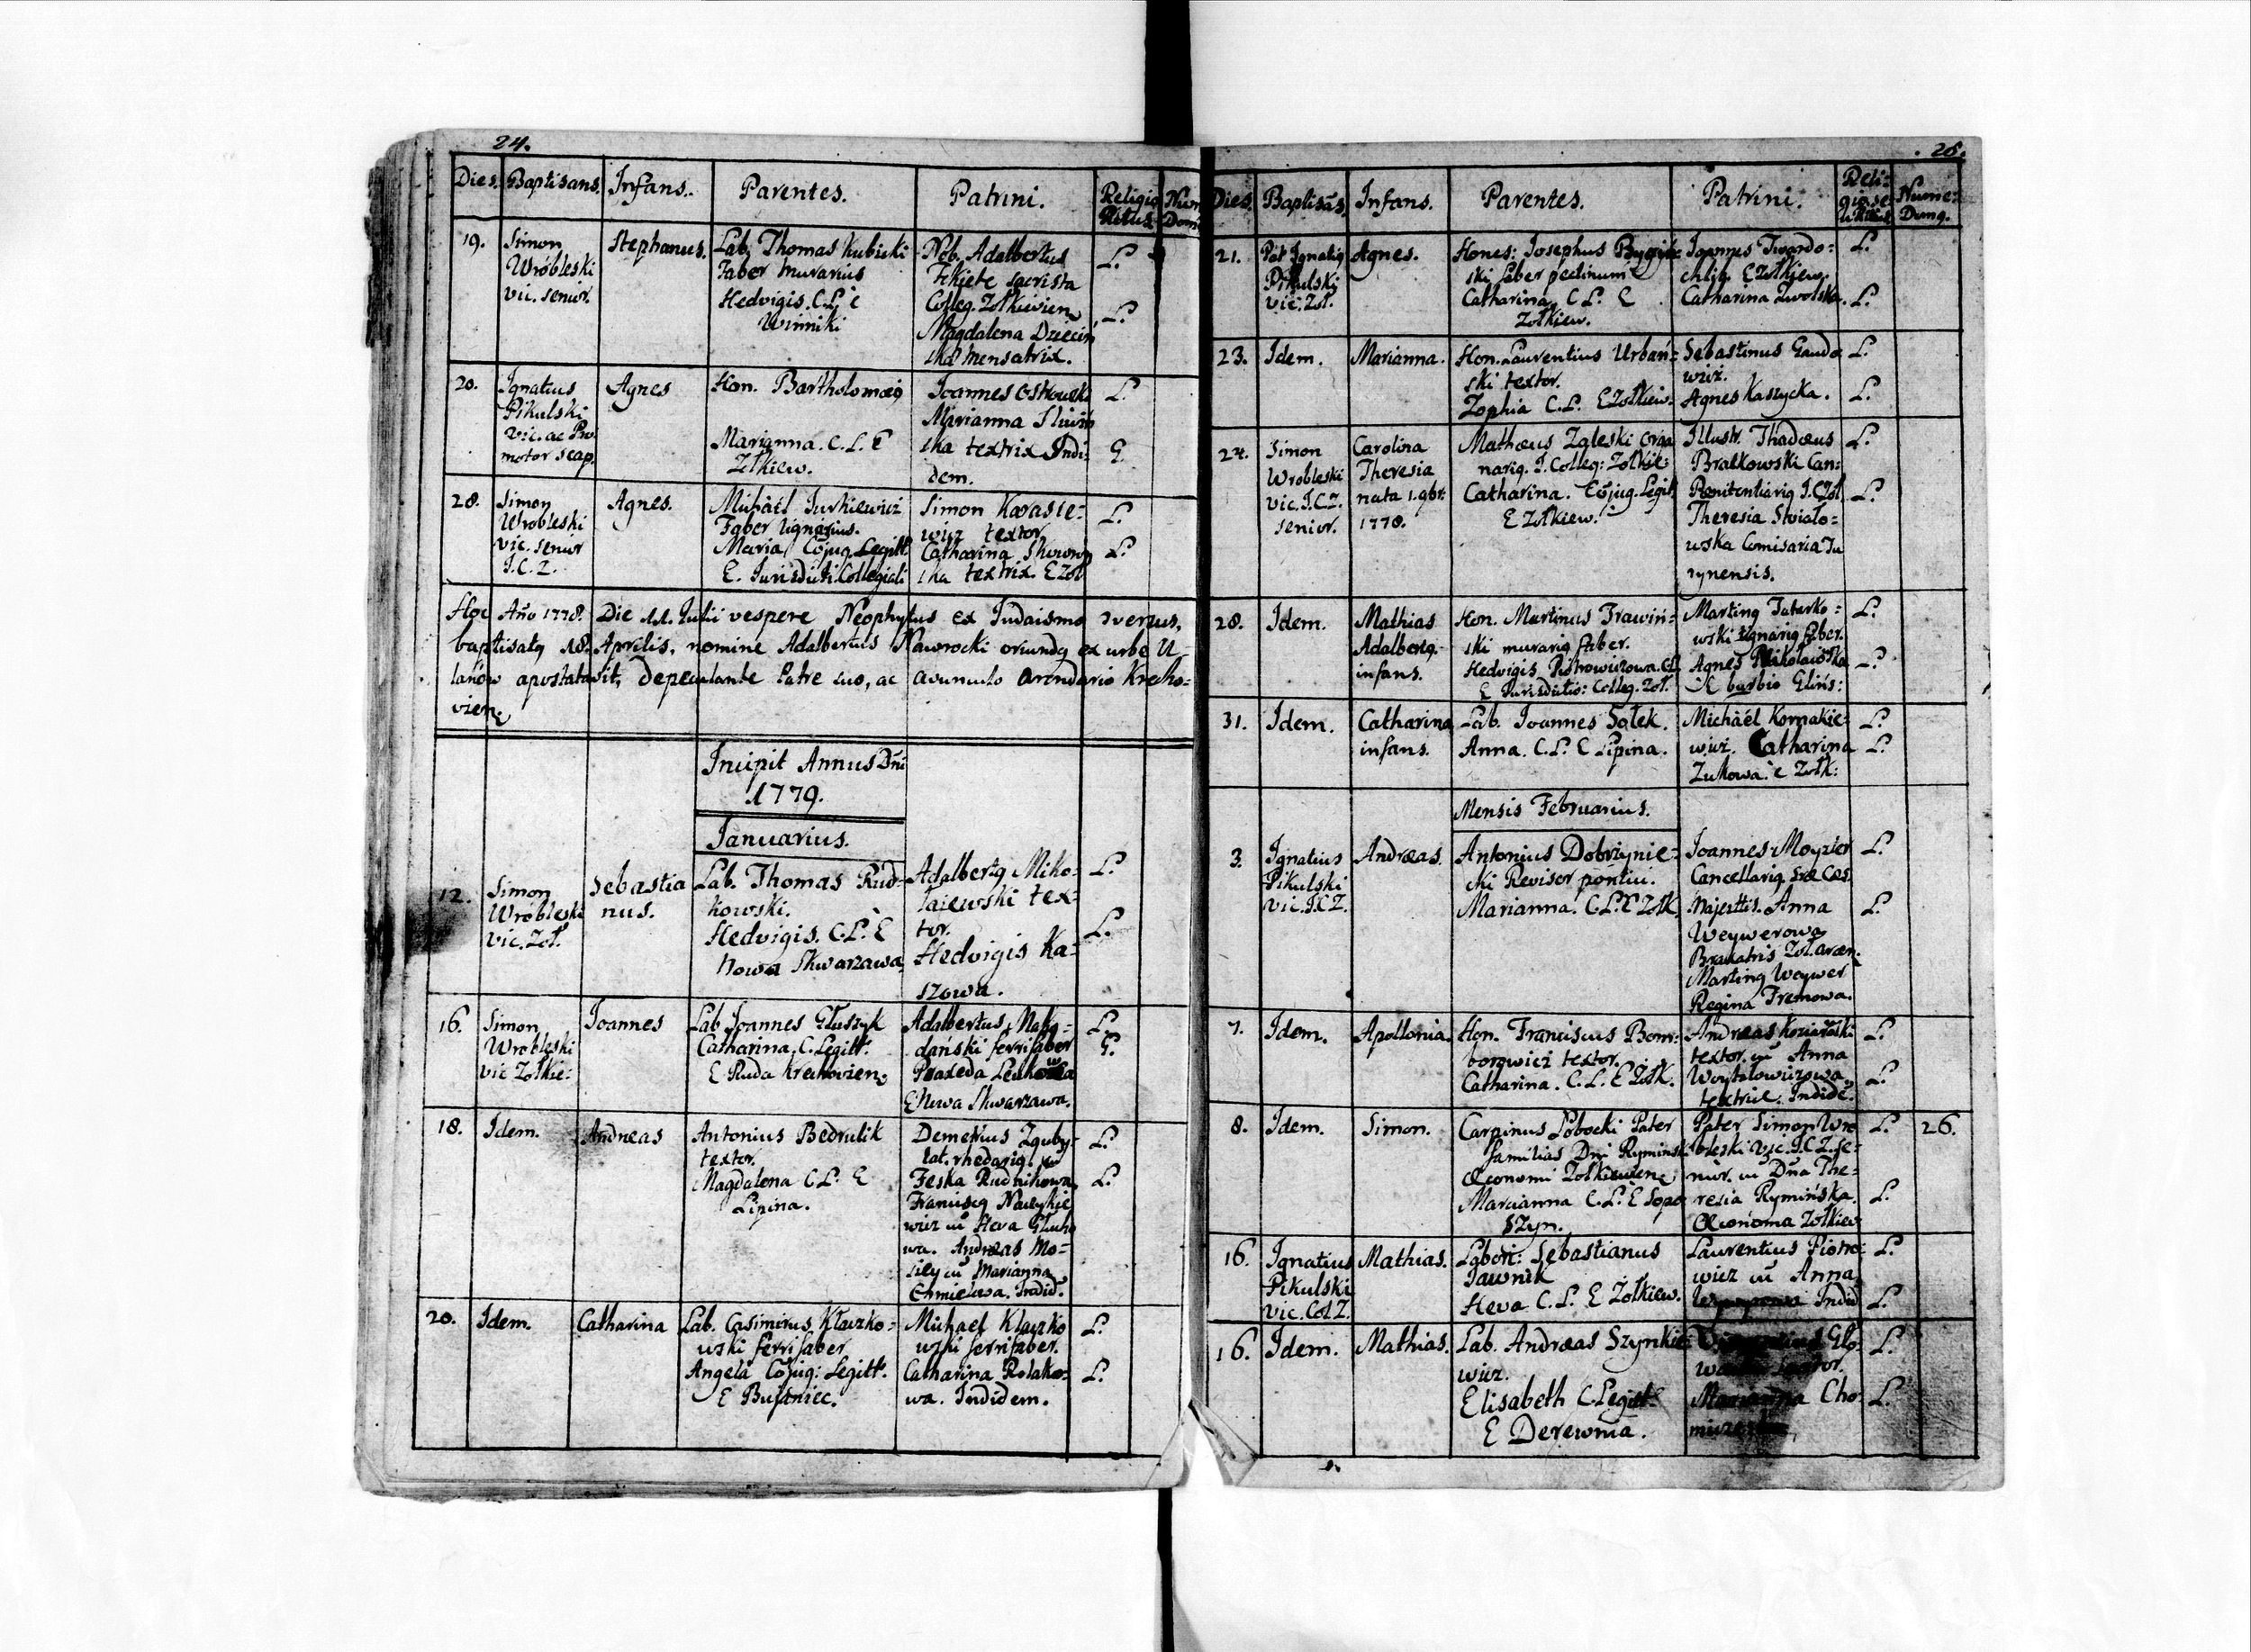 24.
Dies. Baptisans. Infans. Parentes. Patrini. Religio Ritus
19.
Simon
Wróbleski
vic. senior.
Stephanus.
Lab. Thomas Kubicki
Faber murarius
Hedvigis. C.L. è
Winniki
Nob. Adalbertus
Fekiete sacrista
Colleg. Zołkievien
Magdalena Dziecin
ska mensatrix.
L.
L.
20.
Ignatius
Pikulski
vic. ac Pro
motor scap.
Agnes
Hon. Bartholomæq
Marianna. C.L. E
Zołkiew.
Joannes Ostrowski
Marianna Sliwin
ska textrix Indi-
dem.
L.
G.
28.
Simon
Wrobleski
vic. senior
I.C.Z.
Agnes.
Michäel Jurkiewicz
Faber lignarius.
Maria Cõjug. Legitt.
E. Jurisdicti. Collegiali
Simon Karasie-
wicz textor
Catharina Skowron
ska textrix. E Zoł
L.
L.
Hoc Año 1778. Die 11. Julii vespere Neophytus ex Judaismo versus,
baptisatq 18. Aprilis, nomine Adalbertus Nawrocki oriundq ex urbe U-
lanow apostatavit, depeculante Patre suo, ac avunculo Arendario Krecho-
vien
Incipit Annus Dñi
1779.
Januarius.
12.
Simon
Wróbleski
vic. Zoł.
Sebastia
nus.
Lab. Thomas Rud-
kowski.
Hedvigis. C.L. È
Nowa Skwarzawa
Adalbertq Miko-
łaiewski tex-
tor.
Hedvigis Ka-
szowa.
L.
L.
16.
Simon
Wrobleski
vic Zołkie:
Joannes
Lab Joannes Głuszyk
Catharina C. Legitt.
E Ruda Krechovien
Adalbertus
dański ferrifaber
Praxeda
E Nova Skwarzawa.
L.
G.
18.
Idem.
Andreas
Antonius Bedrulik
textor.
Magdalena C.L. E
Lipina.
Demetrius Zguby-
łat. rhedariq.
Feska Rudnikowa,
Franciscq
wicz cũ Heva
wa. Andreas Mo-
sily cũ Marianna
Chmielewa. Indid.
L.
L.
20.
Idem.
Catharina
Lab. Casimirus Kłaczko-
wski ferrifaber
Angela Cõjug: Legitt.
E
Michael Kłaczko
wski ferrifaber.
Catharina Rodako-
wa. Indidem.
L.
L.
25.
Dies. Baptisãs. Infans. Parentes. Patrini. Reli- Nume:
21.
Pat Ignatiq
Pikulski
vic: Zoł.
Agnes.
Hones: Josephus
ski faber pectinum
Catharina C.L. E
Zołkiew.
Joannes Twardo:
chlib. E Zołkiew.
Catharina Zwolska.
L.
L.
23.
Idem.
Marianna.
Hon. Laurentius Urbań-
ski textor.
Zophia C.L. E Zołkiew-
Sebastinus Gaudo
wicz.
Agnes Kaszycka.
L.
L.
24.
Simon
Wrobleski
vic. I.C.Z.
senior.
Carolina
Theresia
nata 1. 9br.
1778.
Mathæus Zaleski orga
nariq. I. Colleg: Zołkie-
Catharina. Cõjug. Legit
E Zołkiew.
Illustr. Thadæus
Bratkowski Can:
Pænitentiariq I.C. Zoł
Theresia Swiało-
wska Comisaria Tu
rynensis.
L.
L.
28.
Idem.
Mathias
Adalbertq.
infans.
Hon. Martinus Trawiń-
ski murariq faber.
Hedvigis Piotrowiczowa. C.L.
E Jurisdictio: Colleg. Zoł.
Martinq Tatarko:
wski lignariq faber.
Agnes Mikołaiowska
L.
L.
31.
Idem.
Catharina
infans.
Lab. Joannes Sołek.
Anna. C.L. E Lipina.
Michäel Kornakie-
wicz. Catharina
Zukowa. è Zołk:
L.
L.
Mensis Februarius.
3.
Ignatius
Pikulski
vic. I.C.Z.
Andræas.
Antonius Dobrzynie-
cki Revisor pontiu.
Marianna. C.L. E Zołk.
Joannes Moyzer
Cancellariq Sræ Cæs.
Majesttis. Anna
Weywerowa
Martinq Weywer
Regina Fremowa.
L.
L.
7.
Idem.
Apollonia.
Hon. Franciscus Bom:
borowicz textor.
Catharina. C.L. E Zołk.
Andreas
textor. cũ Anna
Woytalowiczowa
textrice. Indidē.
L.
L.
8.
Idem.
Simon.
Carpinus Łobocki Pater
familias Dni Rymiński
Œconomi Zołkievien
Marcianna C.L. E Sopo
szyn.
Pater Simon Wro
bleski Vic. I.C.Z. se-
nior. cũ Dña The-
resia Rymińska.
Œconoma Zołkiew.
L.
L.
26.
16.
Ignatius
Pikulski
vic. Col Z.
Mathias.
Labori: Sebastianus
Jawnik
Heva C.L. E Zołkiew.
Laurentius Piotro-
wicz cũ Anna
Indid
L.
L.
16.
Idem.
Mathias.
Lab. Andræas Szynkie-
wicz.
Elisabeth C. Legitt.
E Derewnia.
Marianna Cho
L.
L.